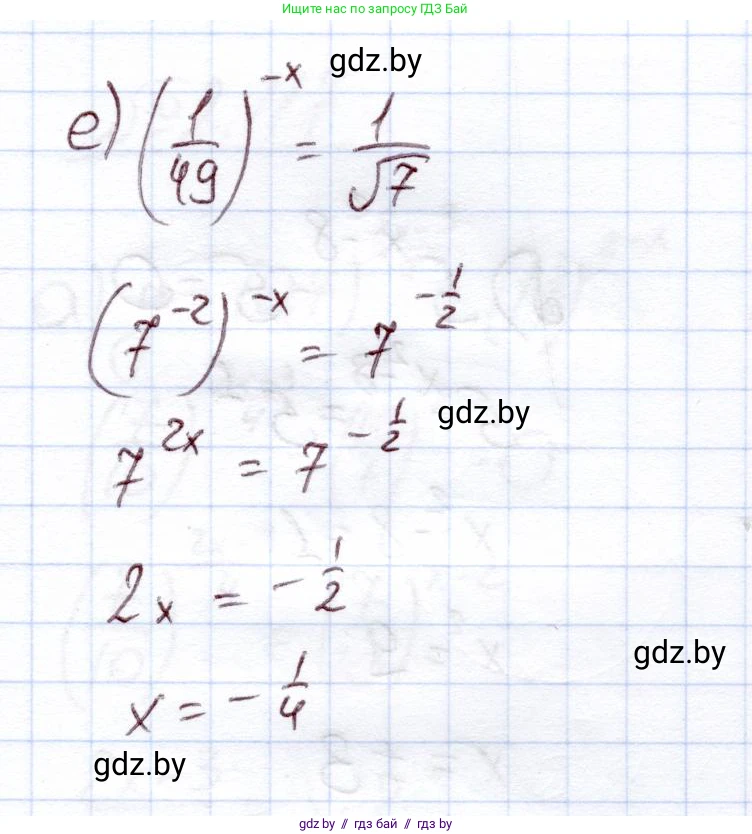 Ищите нас по запросу ГДЗ Бай
gdz.by
е) (1/49)^(-x) = 1/√7
(7^(-2))^(-x) = 7^(-1/2)
gdz.by
7^(2x) = 7^(-1/2)
2x = -1/2
gdz.by
x = -1/4
gdz.by
gdz.by // гдз бай // гдз by